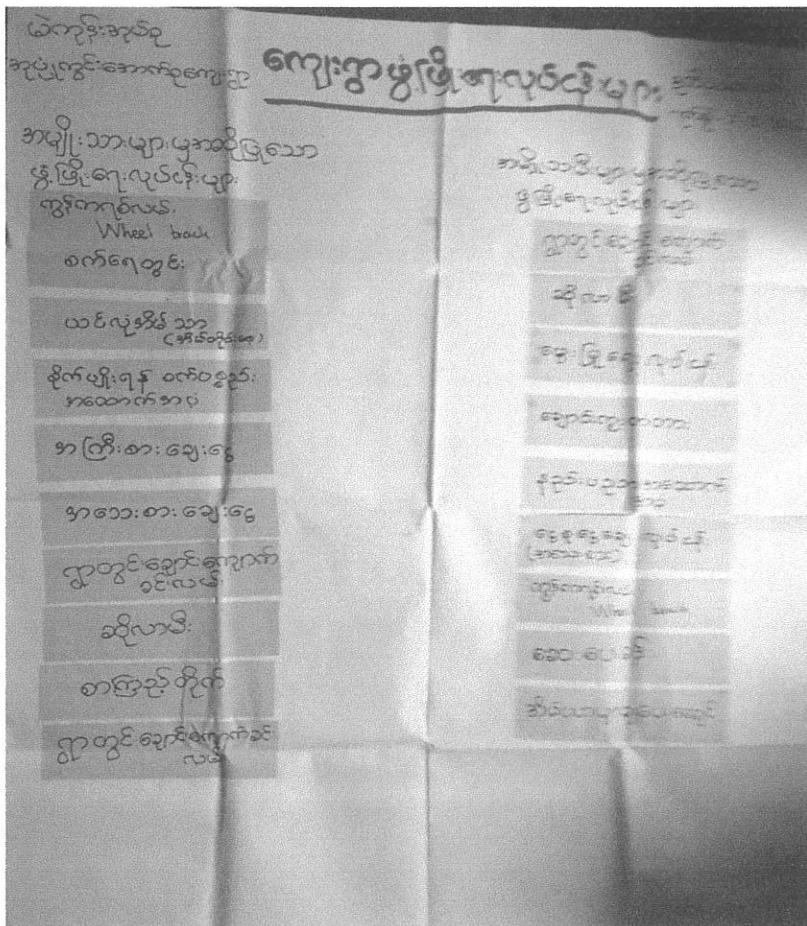 မဲကုန်းအုပ်စု
အုပ်ကွင်းအောက်စုကျေးရွာ
ကျေးရွာဖွံ့ဖြိုးရေးလုပ်ငန်းများ
အမျိုးသားများမှအဆိုပြုသော
ဖွံ့ဖြိုးရေးလုပ်ငန်းများ
ကွန်ကရစ်လမ်း
Wheel track
စက်ရေတွင်း
ယင်လုံအိမ်သာ
(အိမ်တိုင်းစေ့)
စိုက်ပျိုးရန် စက်ပစ္စည်း
အထောက်အပံ့
အကြီးစားချေးငွေ
အသေးစားချေးငွေ
ရွာတွင်းချောင်းကျောက်
ခင်းလမ်း
ဆိုလာမီး
စာကြည့်တိုက်
ရွာတွင်းချောင်းကျောက်ခင်း
လမ်း
အမျိုးသမီးများမှအဆိုပြုသော
ဖွံ့ဖြိုးရေးလုပ်ငန်းများ
ရွာတွင်းချောင်းကျောက်
ခင်းလမ်း
ဆိုလာမီး
မွေးမြူရေးလုပ်ငန်း
ချောင်းကူးတံတား
နည်းပညာအထောက်
အပံ့
ငွေစုငွေချေးလုပ်ငန်း
(အသေးစား)
ကွန်ကရစ်လမ်း
Wheel track
ဆေးပေးခန်း